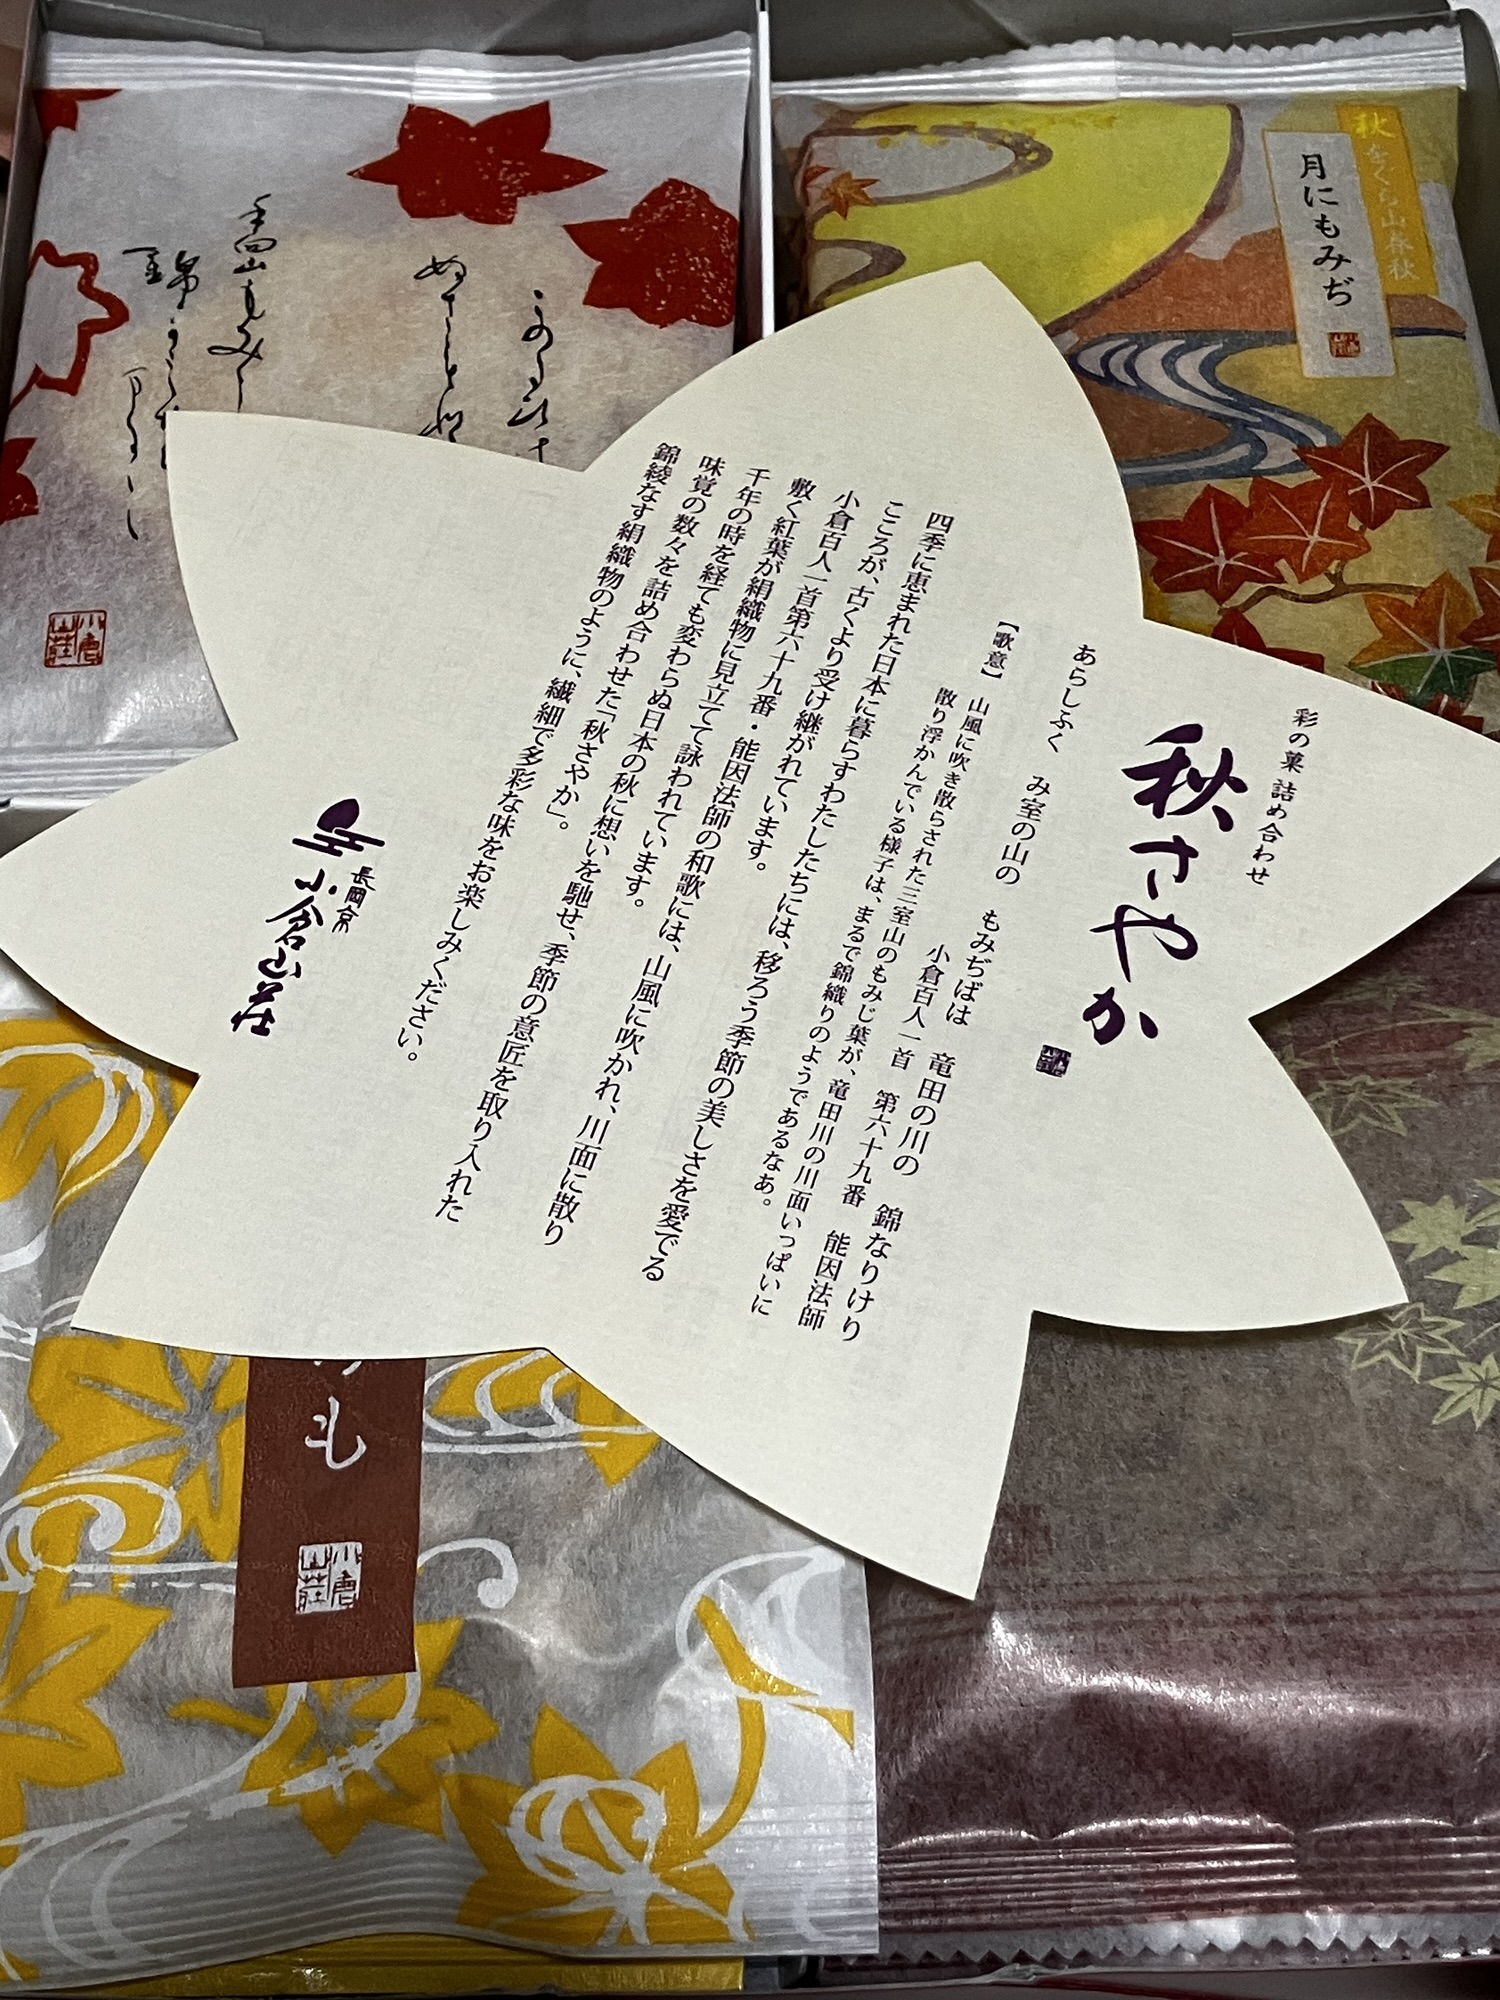 彩の菓 詰め合わせ
秋さやか
あらしふく み室の山の もみぢばは 竜田の川の 錦なりけり
小倉百人一首 第六十九番 能因法師
【歌意】山風に吹き散らされた三室山のもみじ葉が、竜田川の川面いっぱいに
散り浮かんでいる様子は、まるで錦織りのようであるなあ。
四季に恵まれた日本に暮らすわたしたちには、移ろう季節の美しさを愛でる
こころが、古くより受け継がれています。
小倉百人一首第六十九番・能因法師の和歌には、山風に吹かれ、川面に散り
敷く紅葉が絹織物に見立てて詠われています。
千年の時を経ても変わらぬ日本の秋に想いを馳せ、季節の意匠を取り入れた
味覚の数々を詰め合わせた「秋さやか」。
錦綾なす絹織物のように、繊細で多彩な味をお楽しみください。
長岡京
小倉山荘
秋
をぐら山春秋
月にもみぢ
このたびは
ぬさもと
手向山もみぢ
錦
小倉山荘
も
小倉山荘